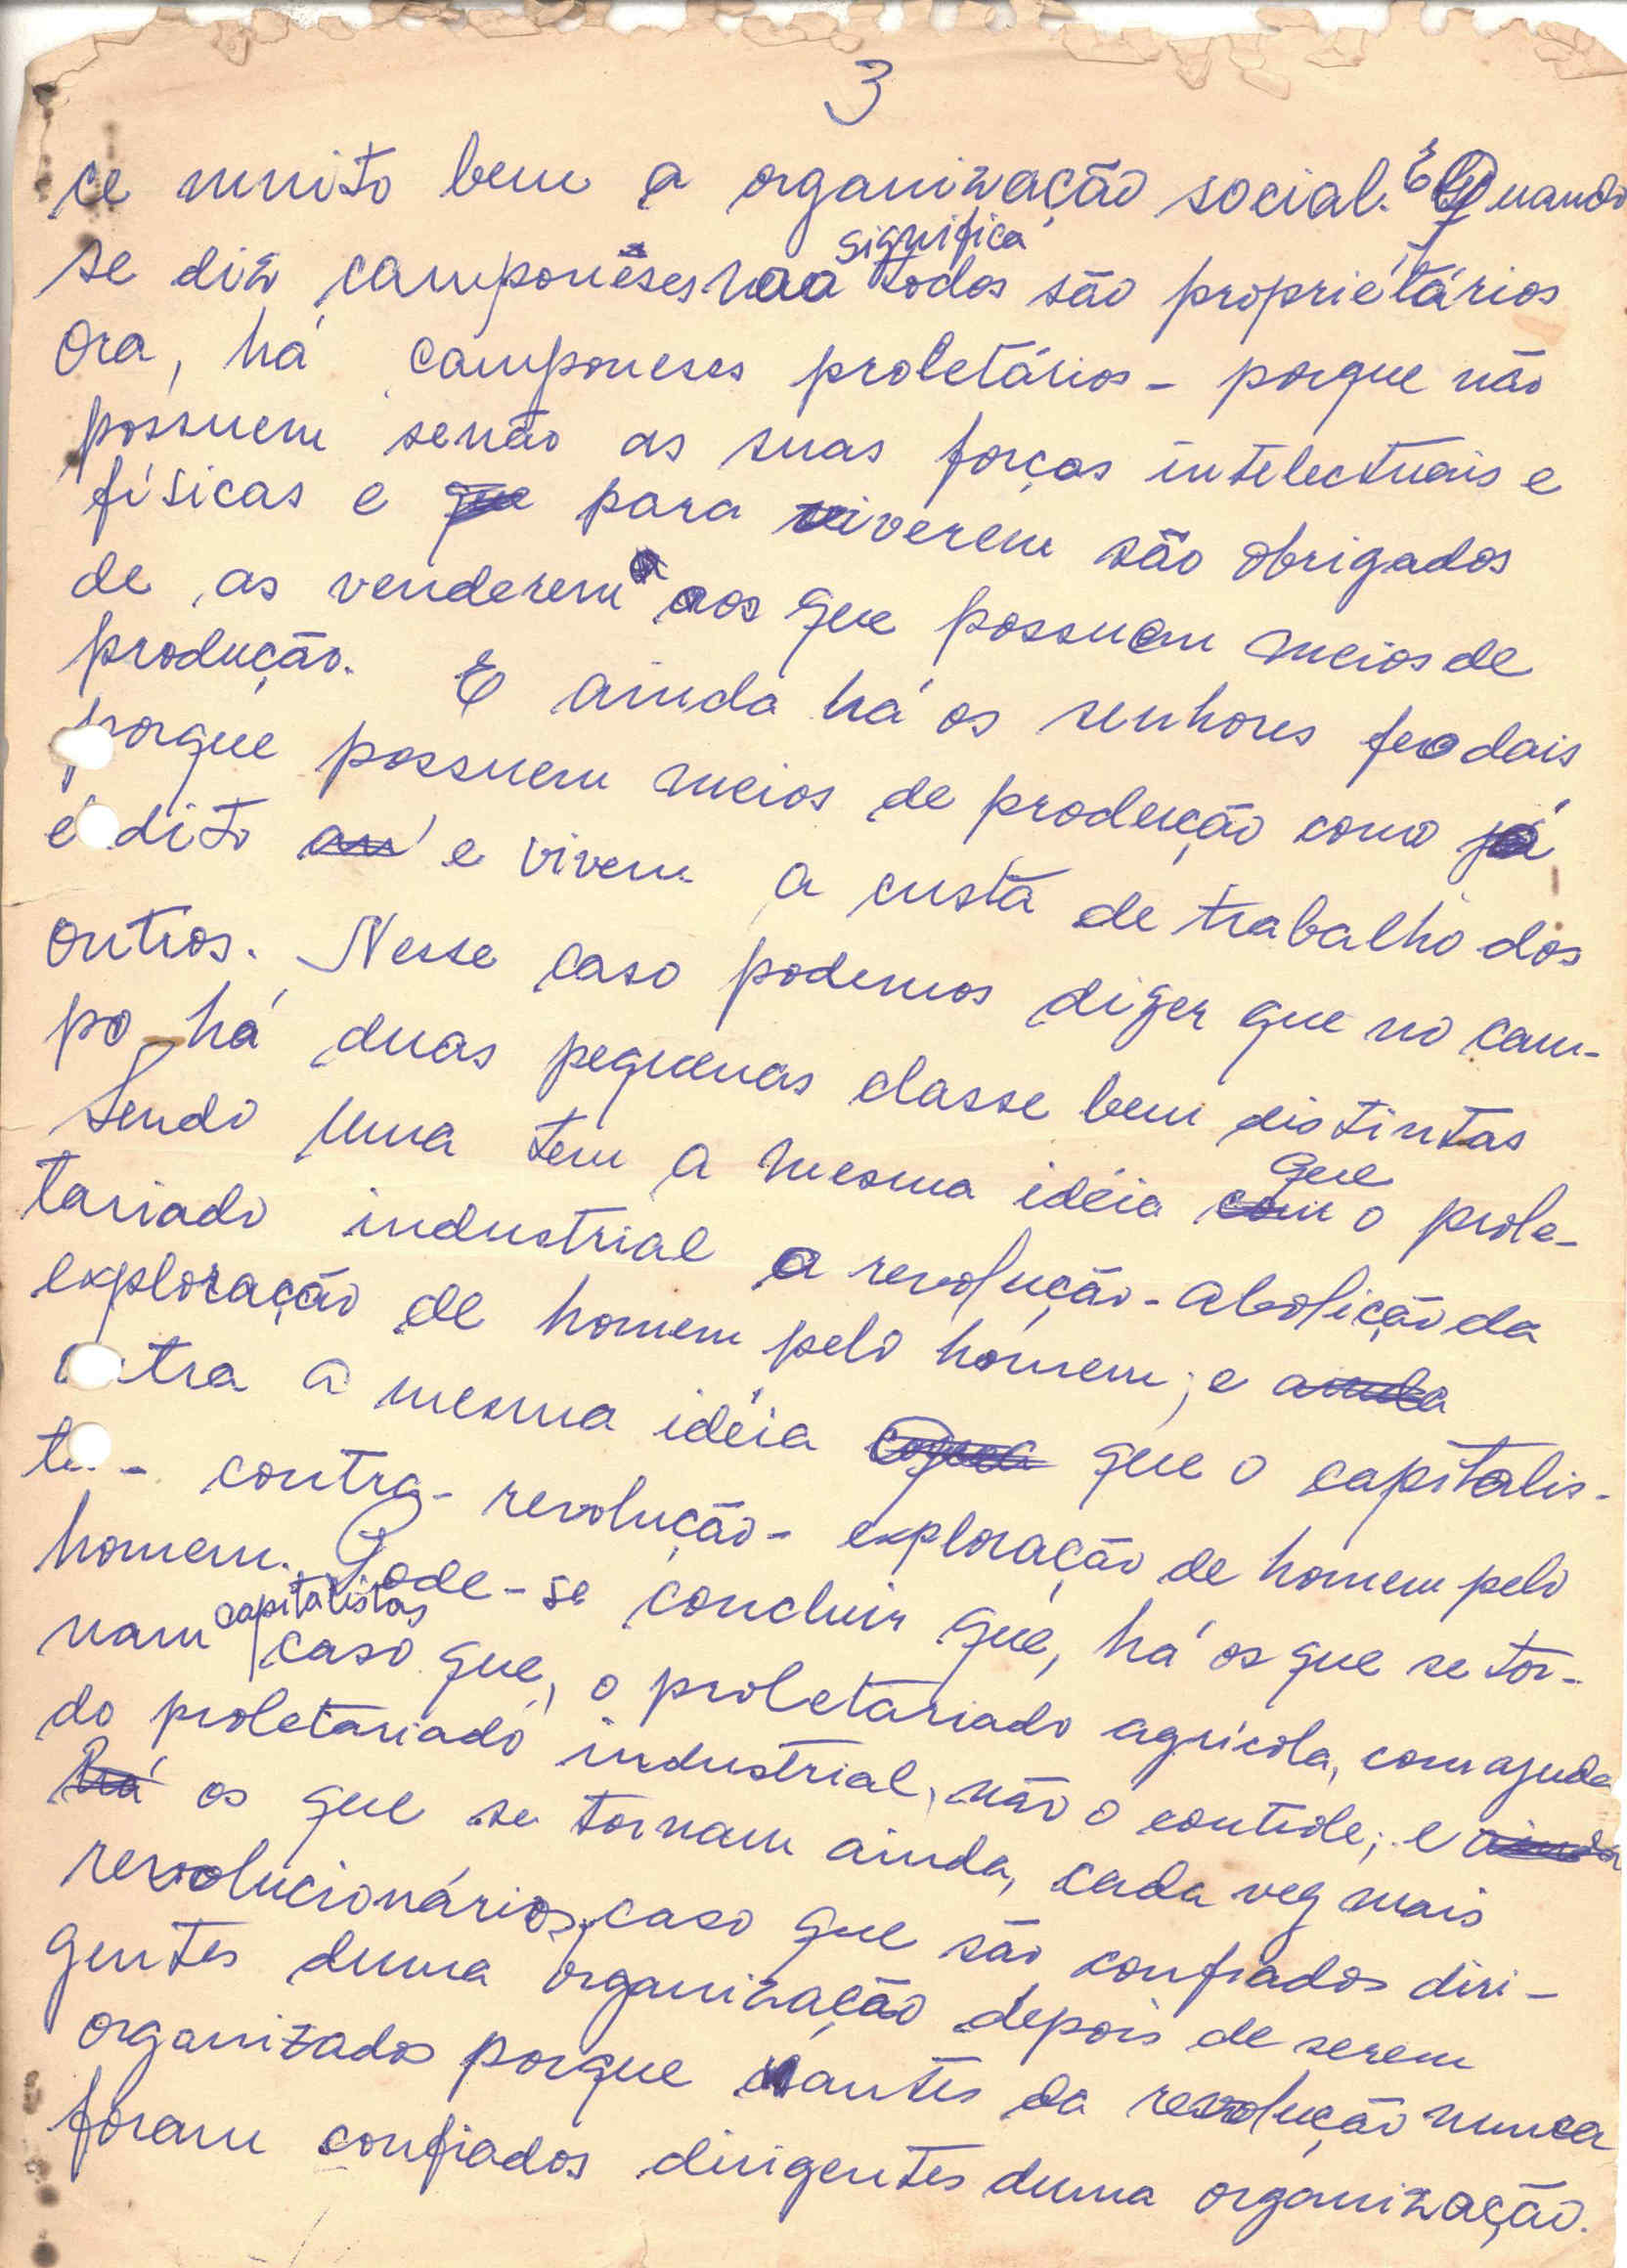 3
ce muito bem a organização social. E Quando
significa
se diz camponêses não todos são proprietários
Ora, há camponeses proletários - porque não
possuem senão as suas forças intelectuais e
físicas e que para viverem são obrigados
de as venderem aos que possuem meios de
produção. E ainda há os senhores feodais
porque possuem meios de produção como já
é dito e vivem a custa de trabalho dos
outros. Nesse caso podemos diger que no cam-
po há duas pequenas classe bem distintas
Sendo uma tem a mesma idéia com que o prole-
tariado industrial a revolução - abolição da
exploração de homem pelo homem; e ainda
outra a mesma idéia que o capitalis-
t - contra-revolução - exploração de homem pelo
homem. Pode-se concluir que, há os que se tor-
nam capitalistas caso que, o proletariado agrícola, com ajuda
do proletariado industrial, não o controle; e ainda
há os que se tornam ainda, cada veg mais
revolucionários, caso que são confiados diri-
gentes duma organização depois de serem
organizados porque antes da revolução nunca
foram confiados dirigentes duma organização.